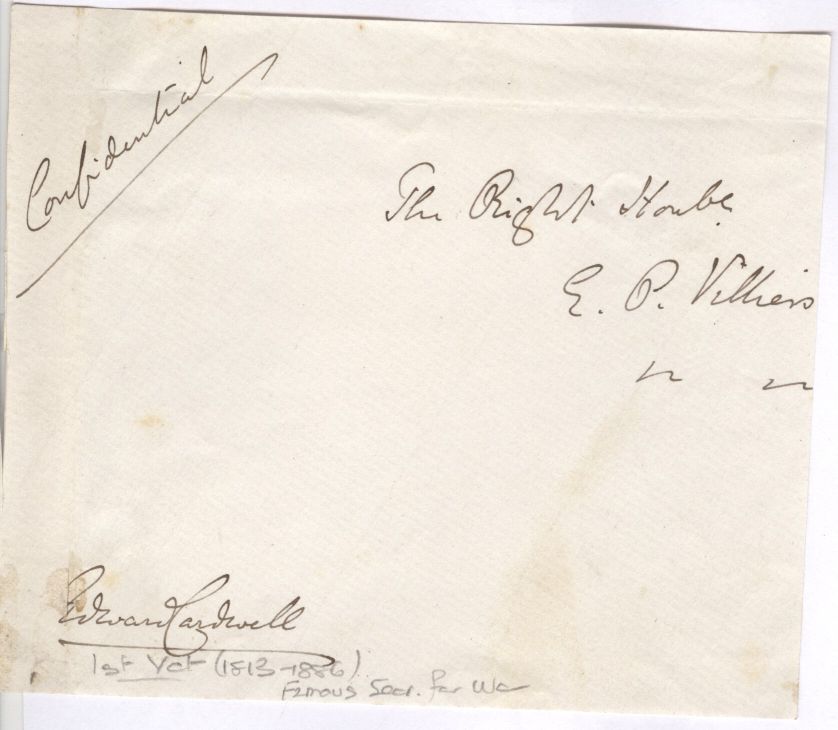 Confidential
The Right Honble
E. P. Villiers
Edward Cardwell
1st Vct (1813-1886)
Famous Secr. for War